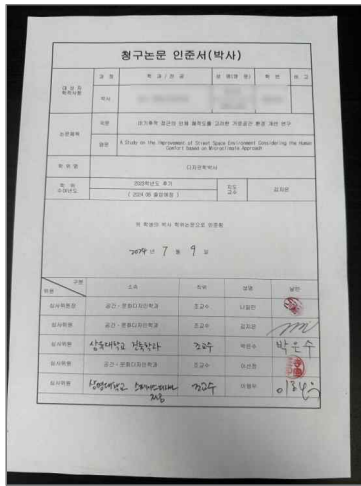 청구논문 인준서(박사)
대상자 학적사항
과 정
학 과 / 전 공
성 명(생 년)
학 번
비 고
박사
논문제목
국문
미기후적 접근의 인체 쾌적도를 고려한 가로공간 환경 개선 연구
영문
A Study on the Improvement of Street Space Environment Considering the Human
Comfort based on Microclimate Approach
학 위 명
디자인학박사
학 위
수여년도
2023학년도 후기
( 2024.08 졸업예정 )
지도
교수
김지은
위 학생의 박사 학위논문으로 인준함
2024 년 7 월 9 일
구분
위원
소속
직위
성명
날인
심사위원장
공간·문화디자인학과
조교수
심사위원
공간·문화디자인학과
조교수
김지은
심사위원
삼육대학교 건축학과
조교수
박은수
박은수
심사위원
공간·문화디자인학과
조교수
심사위원
조교수